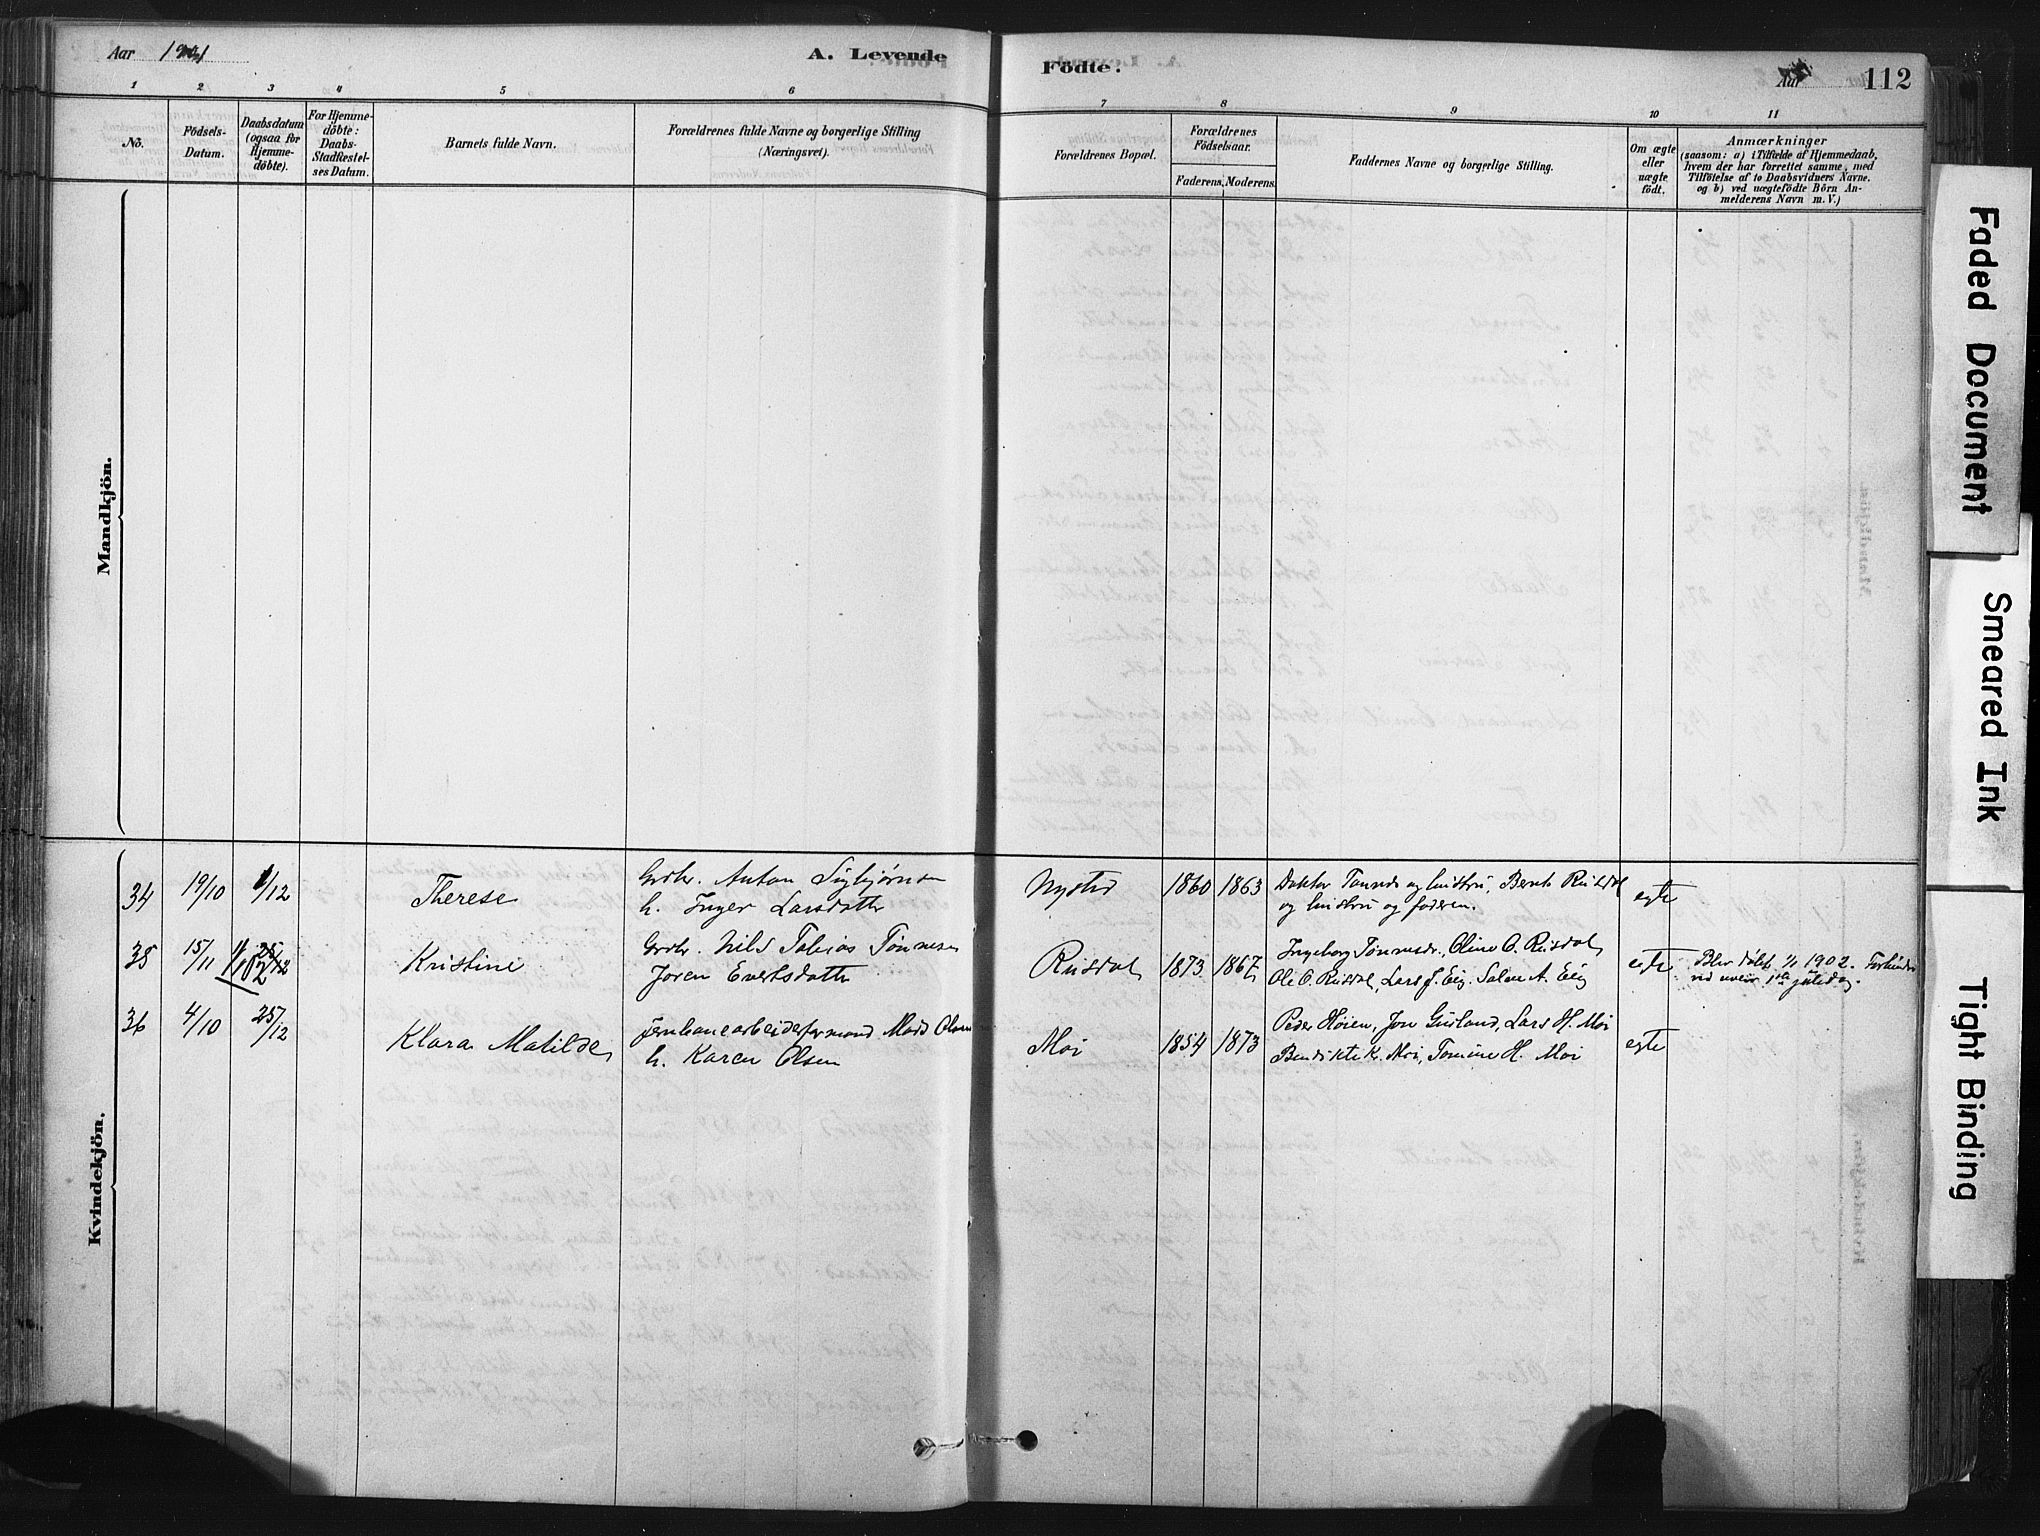 Aar 1901
A. Levende
Födte.
Aar
112
1 2 3 4 5 6
7 8 9 10 11
No.
Födsels-
Datum.
Daabsdatum
(ogsaa for
Hjemme-
döbte).
For Hjemme-
döbte:
Daabs-
Stadfæstel-
ses Datum.
Barnets fulde Navn.
Forældrenes fulde Navne og borgerlige Stilling
(Næringsvei).
Forældrenes Bopæl.
Forældrenes
Födselsaar.
Faderens. Moderens.
Faddernes Navne og borgerlige Stilling.
Om ægte
eller
uægte
födt.
Anmærkninger
(saasom: a) i Tilfælde af Hjemmedaab,
hvem der har forrettet samme, med
Tilföielse af to Daabsvidners Navne.
og b) ved uægtefödte Börn An-
melderens Navn m. V.)
Mandkjön.
Kvindekjön.
34 19/10 1/12 Therese
Grdbr. Anton Sigbjørnsen
h. Inger Larsdatter
Nysted 1860 1863
Doktor Tønnes og hustru, Bernt Risdal
og hustru og faderen.
egte
35 15/11 25/12 1/1 02 Kristine
Grdbr. Nils Tobias Tønnesen
Joren Evertsdatter
Risdal 1873 1867
Ingeborg Tønnesdr., Oline O. Risdal,
Ole O. Risdal, Lars J. Eig, Salve A. Eig
egte
Blev døbt 1/1 1902. Forhindr
ved uveir 1ste juledag.
36 4/10 25/12 Klara Matilde
Jernbanearbeiderformand Mads Olsen
h. Karen Olsen
Moi 1854 1873
Peder Høien, Jon Gusland, Lars H. Moi
Bendikte K. Moi, Tomine H. Moi
egte
Faded Document
Smeared Ink
Tight Binding